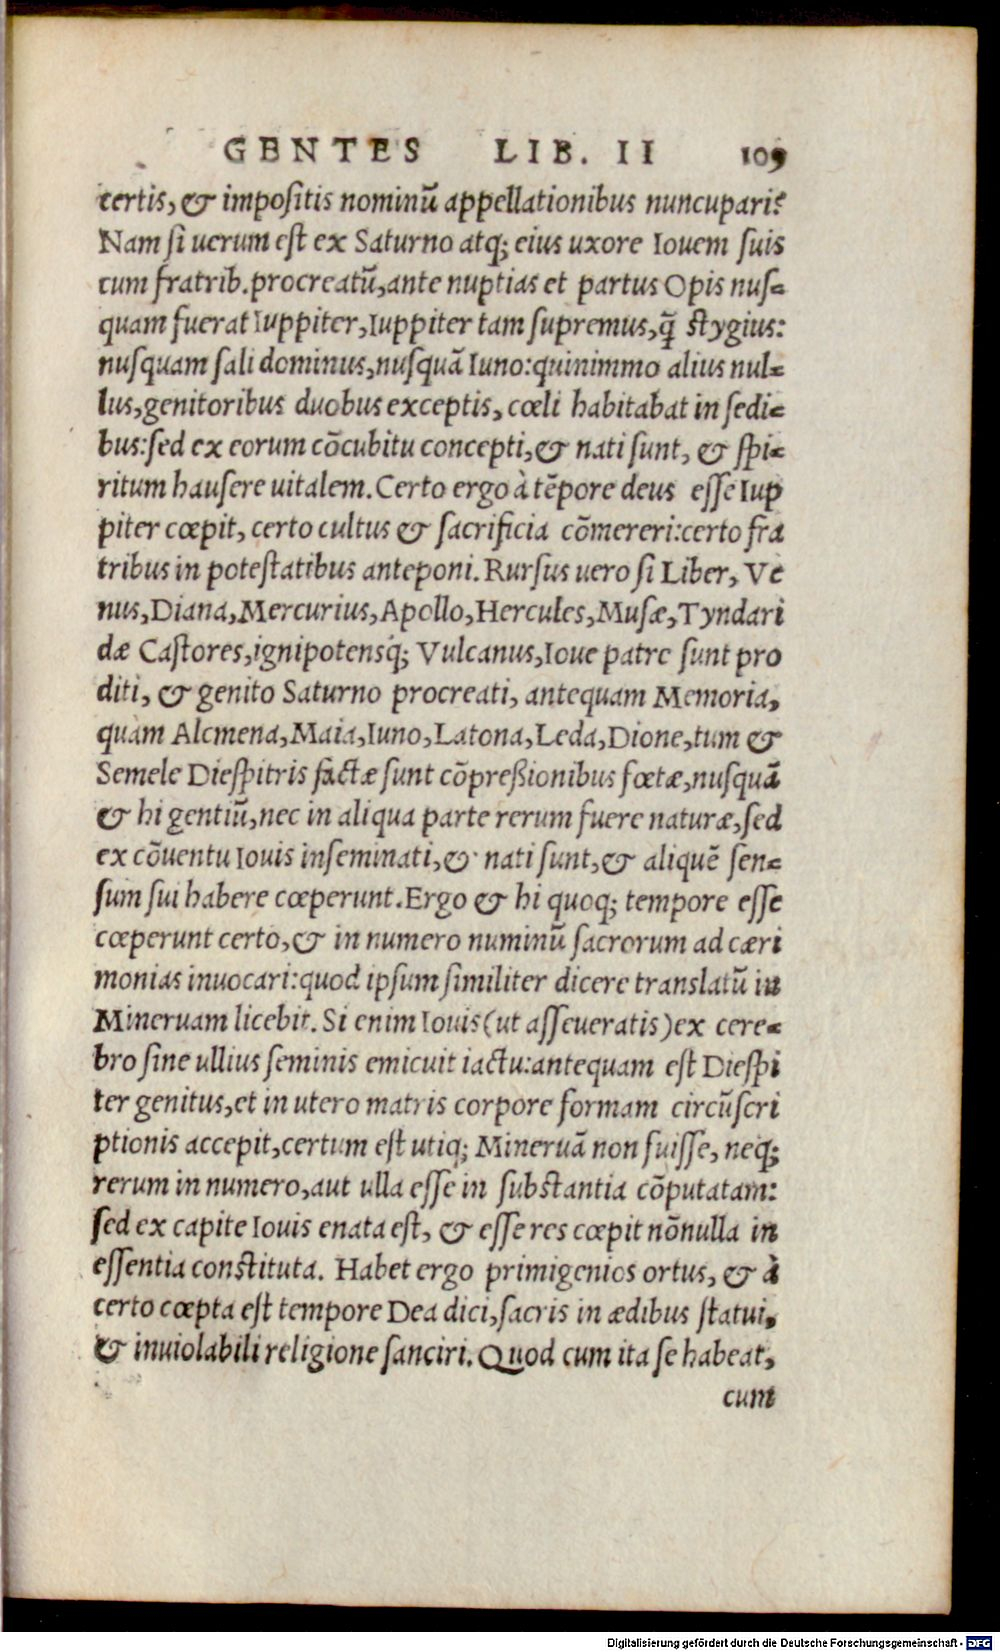 GENTES LIB. II 109
certis, & impositis nominū appellationibus nuncupari?
Nam si uerum est ex Saturno atq; eius uxore Iouem suis
cum fratrib. procreatū, ante nuptias et partus Opis nus-
quam fuerat Iuppiter, Iuppiter tam supremus, q̃ stygius:
nusquam sali dominus, nusquā Iuno: quinimmo alius nul-
lus, genitoribus duobus exceptis, cœli habitabat in sedi-
bus: sed ex eorum cōcubitu concepti, & nati sunt, & spi-
ritum hausere uitalem. Certo ergo à tēpore deus esse Iup
piter cœpit, certo cultus & sacrificia cōmereri: certo fra
tribus in potestatibus anteponi. Rursus uero si Liber, Ve
nus, Diana, Mercurius, Apollo, Hercules, Musæ, Tyndari
dæ Castores, ignipotensq́; Vulcanus, Ioue patre sunt pro
diti, & genito Saturno procreati, antequam Memoria,
quàm Alcmena, Maia, Iuno, Latona, Leda, Dione, tum &
Semele Diespitris factæ sunt cōpreßionibus fœtæ, nusquā
& hi gentiū, nec in aliqua parte rerum fuere naturæ, sed
ex cōuentu Iouis inseminati, & nati sunt, & aliquē sen-
sum sui habere cœperunt. Ergo & hi quoq; tempore esse
cœperunt certo, & in numero numinū sacrorum ad cæri
monias inuocari: quod ipsum similiter dicere translatū in
Mineruam licebit. Si enim Iouis (ut asseueratis) ex cere-
bro sine ullius seminis emicuit iactu: antequam est Diespi
ter genitus, et in utero matris corpore formam circūscri
ptionis accepit, certum est utiq; Mineruā non fuisse, neq;
rerum in numero, aut ulla esse in substantia cōputatam:
sed ex capite Iouis enata est, & esse res cœpit nōnulla in
essentia constituta. Habet ergo primigenios ortus, & à
certo cœpta est tempore Dea dici, sacris in ædibus statui,
& inuiolabili religione sanciri. Quod cum ita se habeat,
cum
Digitalisierung gefördert durch die Deutsche Forschungsgemeinschaft - DFG